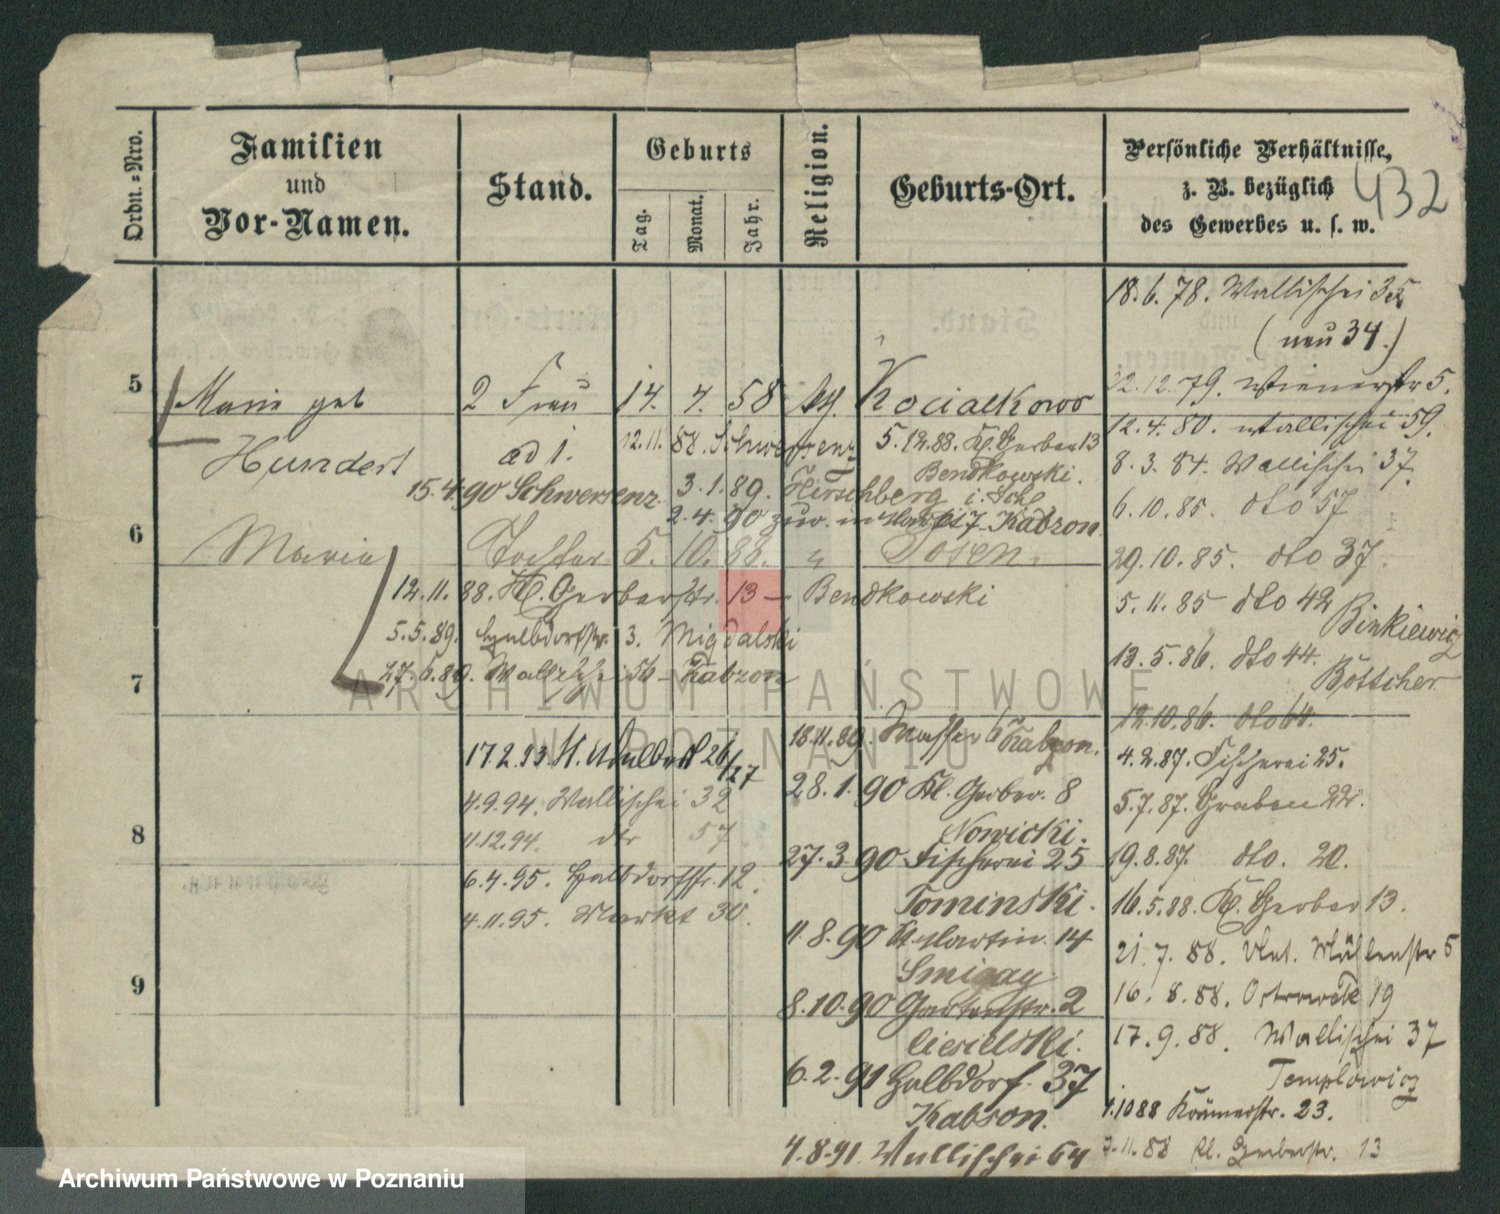 Ordn.-Nro.
Familien
und
Vor-Namen.
Stand.
Geburts
Tag.
Monat.
Jahr.
Religion.
Geburts-Ort.
Persönliche Verhältnisse,
z. B. bezüglich
des Gewerbes u. s. w.
432
18.6.78. Wallischei 35
(neu 34.)
22.12.79. Wienerstr 5.
5
Marie geb
2 Frau 14. 4. 58
Kocialkowo
12.4.80. Wallischei 59.
Hundert
ad 1.
12.11.88. Schwersenz
5.12.88. Kl. Gerber 13
Bendkowski.
8.3.84. Wallischei 37.
15.4.90 Schwersenz
3.1.89. Hirschberg i. Schl
6.10.85. dto 57
2.4.90 zur. Kabzon
6
Maria
Tochter 5. 10. 88. "
Posen.
29.10.85. dto 37.
12.11.88. Kl. Gerberstr. 13 — Bendkowski
5.11.85 dto 42
Binkiewicz
5.5.89. Halbdorfstr. 3. Migdalski
27.6.89. Wallischei 56 — Kabzon
13.5.86. dto 44.
Bottscher
7
12.10.86. dto 60.
18.11.89. Wasser 6 Kabzon.
17.2.93. St. Adalbert 26/27
4.2.87. Fischerei 25.
28.1.90 Kl. Gerber. 8
Nowicki.
4.9.94. Wallischei 32
5.7.87. Graben 22.
8
4.12.94. dto 57
27.3.90 Fischerei 25
Tominski.
19.8.87. dto. 20.
6.4.95. Halbdorfstr. 12.
16.5.88. Kl. Gerber 13.
4.11.95. Markt 30.
11.8.90 St. Martin. 14
21.7.88. Unt. Mühlenstr 5
9
16.8.88. Ostrowek 19
8.10.90 Gartenstr. 2
Ciesielski.
17.9.88. Wallischei 37
Templowicz
6.2.91 Halbdorf. 37
Kabson.
1.10 88 Krämerstr. 23.
4.8.91. Wallischei 64
7.11.88 Kl. Gerberstr. 13
ARCHIWUM PAŃSTWOWE
W POZNANIU
Archiwum Państwowe w Poznaniu